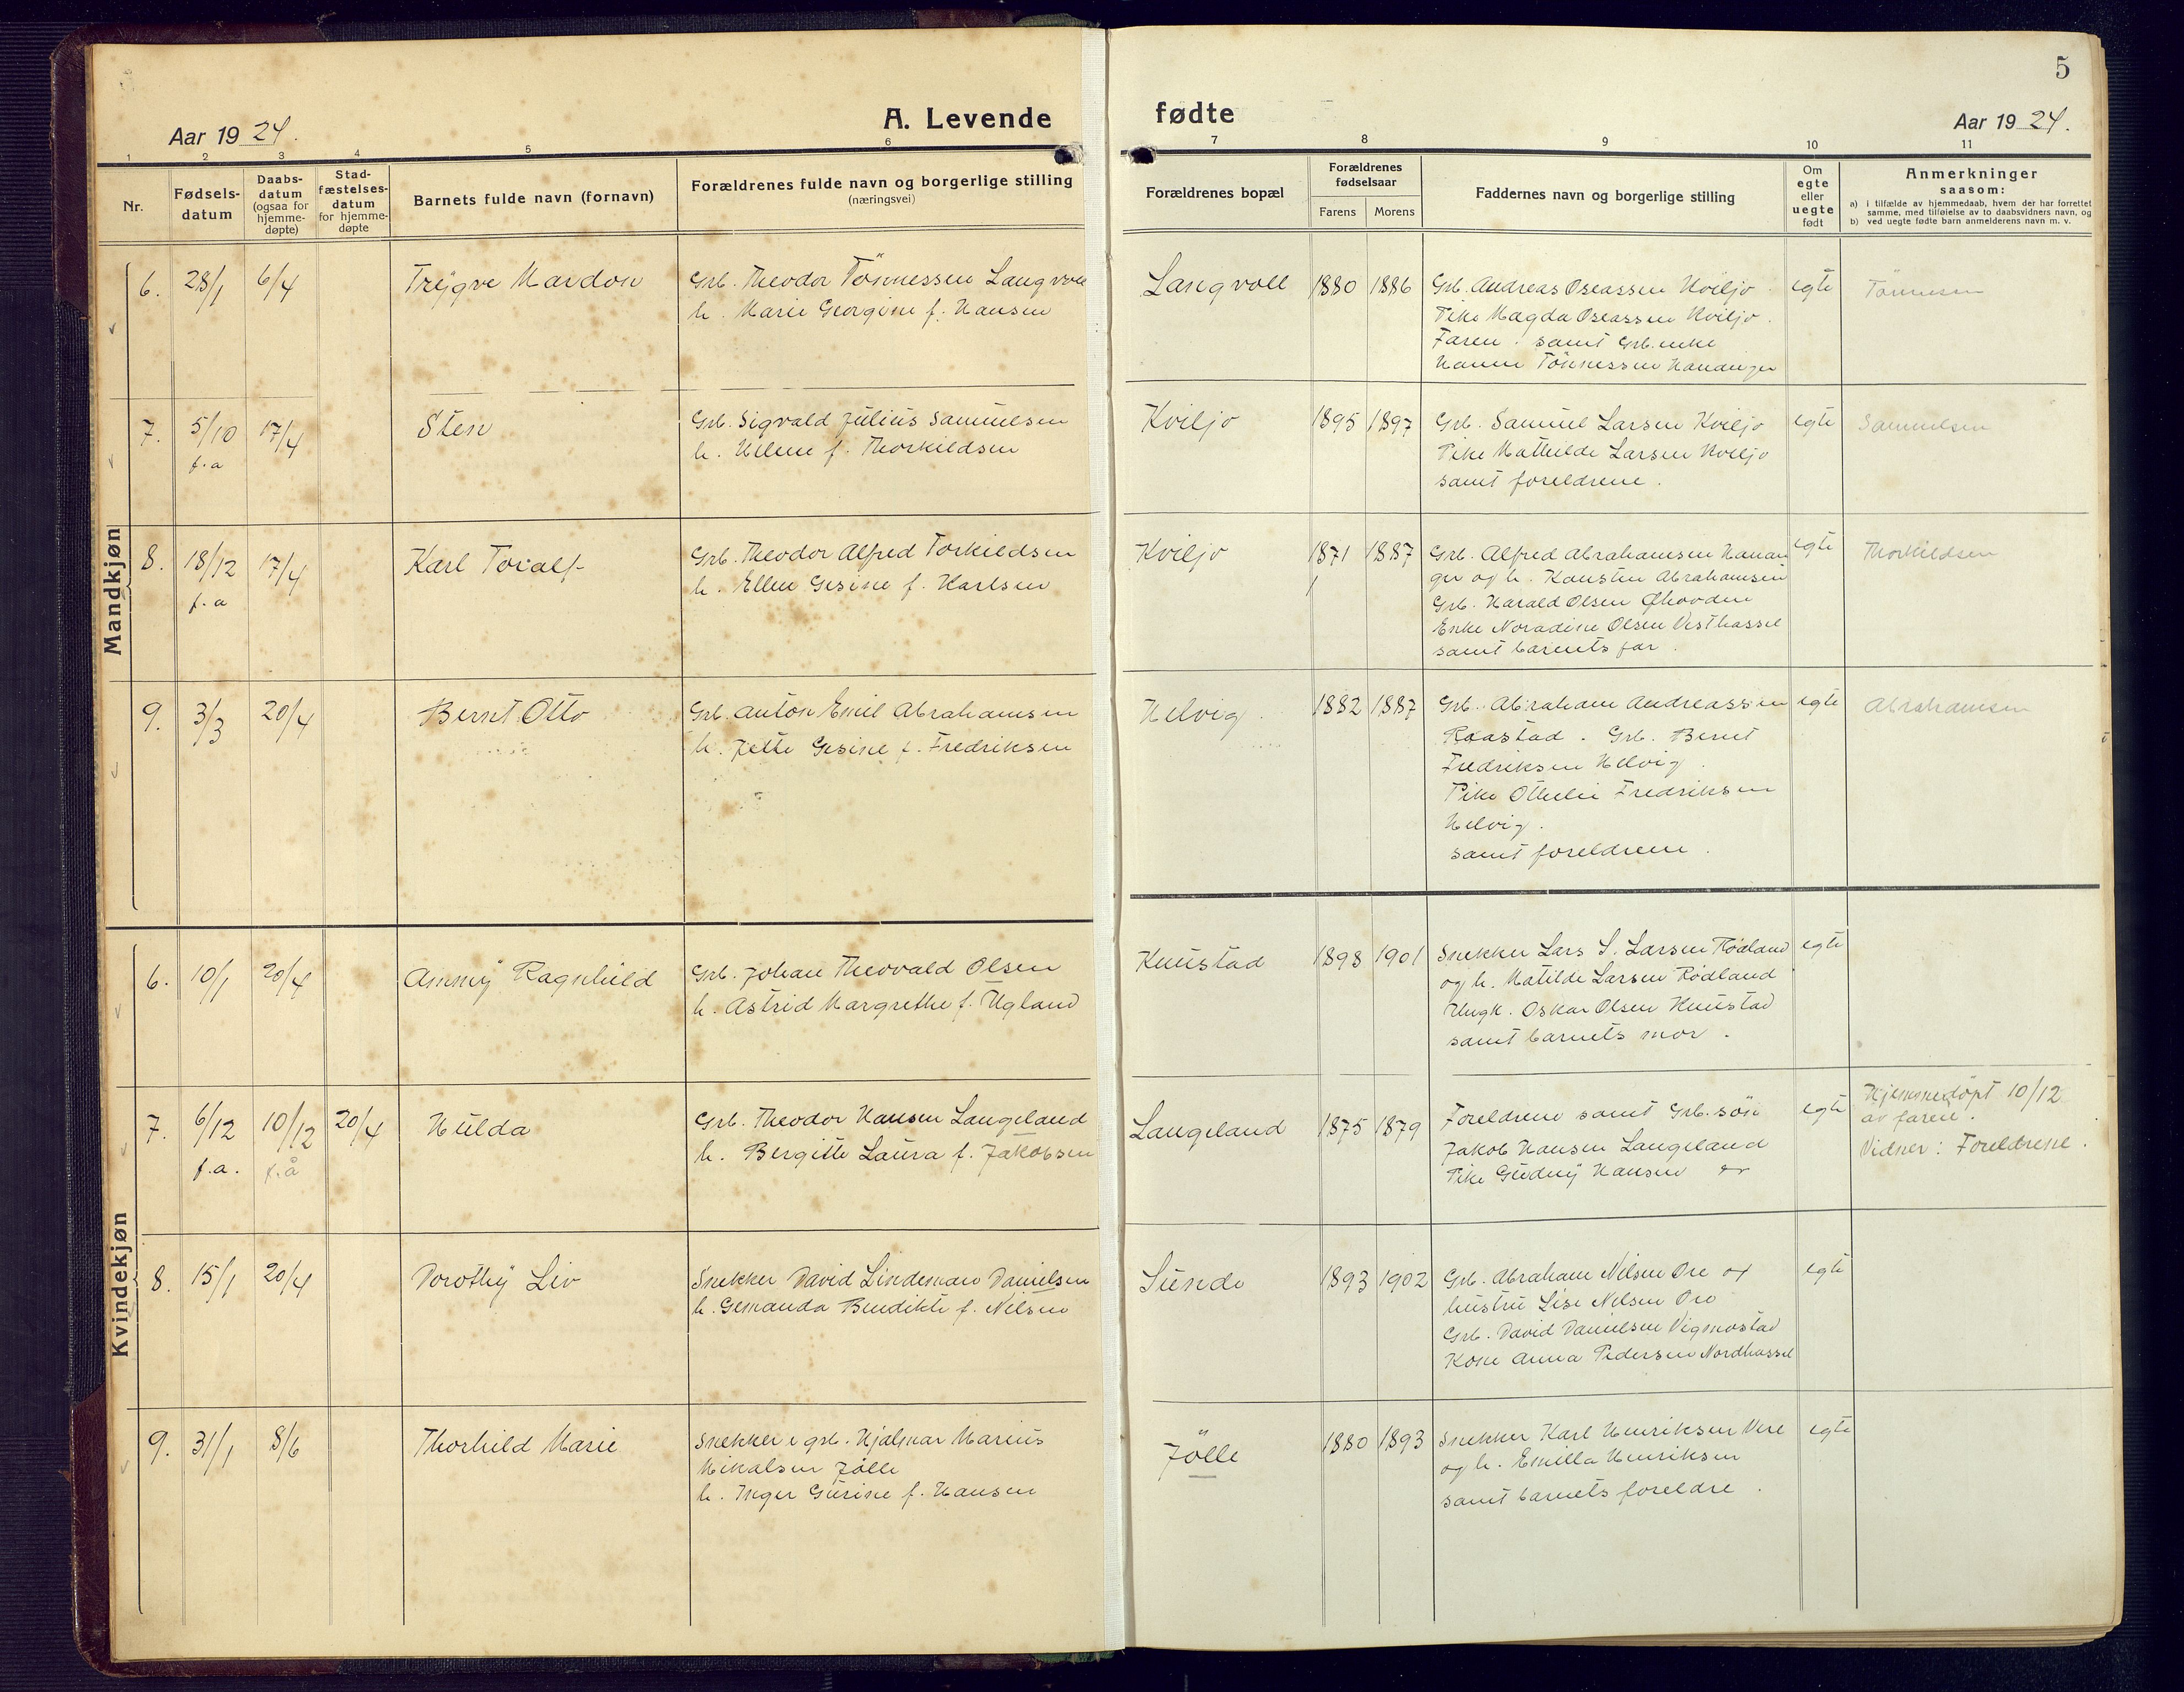 5
A. Levende fødte
Aar 1924.
Aar 1924.
1 2 3 4 5 6 7 8 9 10 11
Nr.
Fødsels-
datum
Daabs-
datum
(ogsaa for
hjemme-
døpte)
Stad-
fæstelses-
datum
for hjemme-
døpte
Barnets fulde navn (fornavn)
Forældrenes fulde navn og borgerlige stilling
(næringsvei)
Forældrenes bopæl
Forældrenes
fødselsaar
Farens Morens
Faddernes navn og borgerlige stilling
Om
egte
eller
uegte
født
Anmerkninger
saasom:
a) i tilfælde av hjemmedaab, hvem der har forrettet
samme, med tilføielse av to daabsvidners navn, og
b) ved uegte fødte barn anmelderens navn m. v.
Mandkjøn
6. 28/1 6/4 Trygve Mardon
Grb. Theodor Tönnessen Langvoll
h. Marie Georgine f. Hansen
Langvoll 1880 1886
Grb. Andreas Oseassen Kviljo.
Pike Magda Oseassen Kviljo.
Faren. samt Grb. enke
Hanne Tönnessen Hananger
egte
Tönnesen
7. 5/10 17/4 Sten
f. a
Grb. Sigvald Julius Samuelsen
h. Helene f. Thorkildsen
Kviljo 1895 1897
Grb. Samuel Larsen Kviljo
Pike Mathilde Larsen Kviljo
samt foreldrene.
egte
Samuelsen
8. 18/12 17/4 Karl Toralf
f. a
Grb. Theodor Alfred Torkildsen
h. Ellen Gesine f. Karlsen
Kviljo 1871 1887
Grb. Alfred Abrahamsen Hanan
ger og h. Konstin Abrahamsen
Grb. Harald Olsen Øhovden
Enke Noradine Olsen Vesthassel
samt barnets far.
egte
Thorkildsen
9. 3/3 20/4 Bernt Otto
Grb. Anton Emil Abrahamsen
h. Jette Gesine f. Fredriksen
Helvig. 1882 1887
Grb. Abraham Andreassen
Raastad. Grb. Bernt
Fredriksen Helvig.
Pike Othelie Fredriksen
Helvig.
samt foreldrene.
egte
Abrahamsen
Kvindekjøn
6. 10/1 20/4 Anny Ragnhild
Grb. Johan Theovald Olsen
h. Astrid Margrethe f. Ugland
Knustad 1898 1901
Snekker Lars S. Larsen Rødland
og h. Matilde Larsen Rødland
Ungk. Oskar Olsen Knustad
samt barnets mor.
egte
7. 6/12 10/12 20/4 Hulda
f. a. f. å
Grb. Theodor Hansen Langeland
h. Bergitte Laura f. Jakobsen
Langeland 1875 1879
Foreldrene samt Grb. søn
Jakob Hansen Langeland
Pike Gudny Hansen
egte
Hjemmedöpt 10/12
av faren.
Vidner: Foreldrene.
8. 15/1 20/4 Dorothy Liv
Snekker David Lindeman Danielsen
h. Gemanda Bendikte f. Nilsen
Sunde 1893 1902
Grb. Abraham Nilsen Ore og
hustru Lise Nilsen Ore
Grb. David Danielsen Vigmostad
Kone Anna Pedersen Nordhassel
egte
9. 31/1 8/6 Thorhild Marie
Snekker e grb. Hjalmar Marius
Mikalsen Jölle
h. Inger Gurine f. Hansen
Jölle 1880 1893
Snekker Karl Henriksen Vere
og h. Emilla Henriksen
samt barnets foreldre.
egte